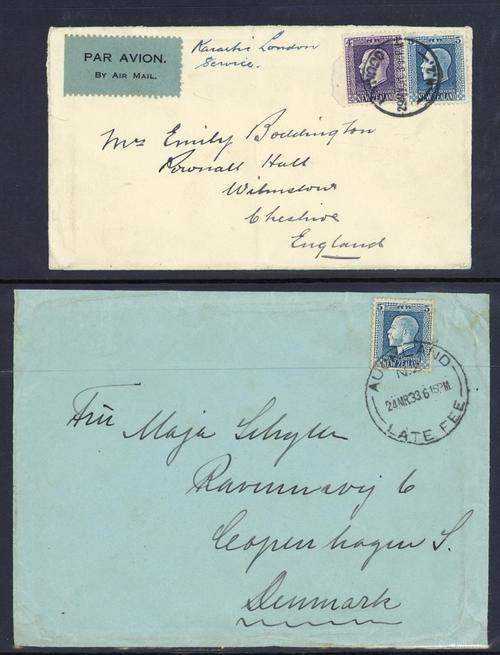 PAR AVION.
BY AIR MAIL.
Karachi London
Service.
4 5
NEW ZEALAND
Mrs Emily Boddington
Pownall Hall
Wilmslow
Cheshire
England
5 5
NEW ZEALAND
AUCKLAND
N.Z.
24MR33 6 15PM
LATE FEE
Maja
Ravennavej 6
Copenhagen S.
Denmark